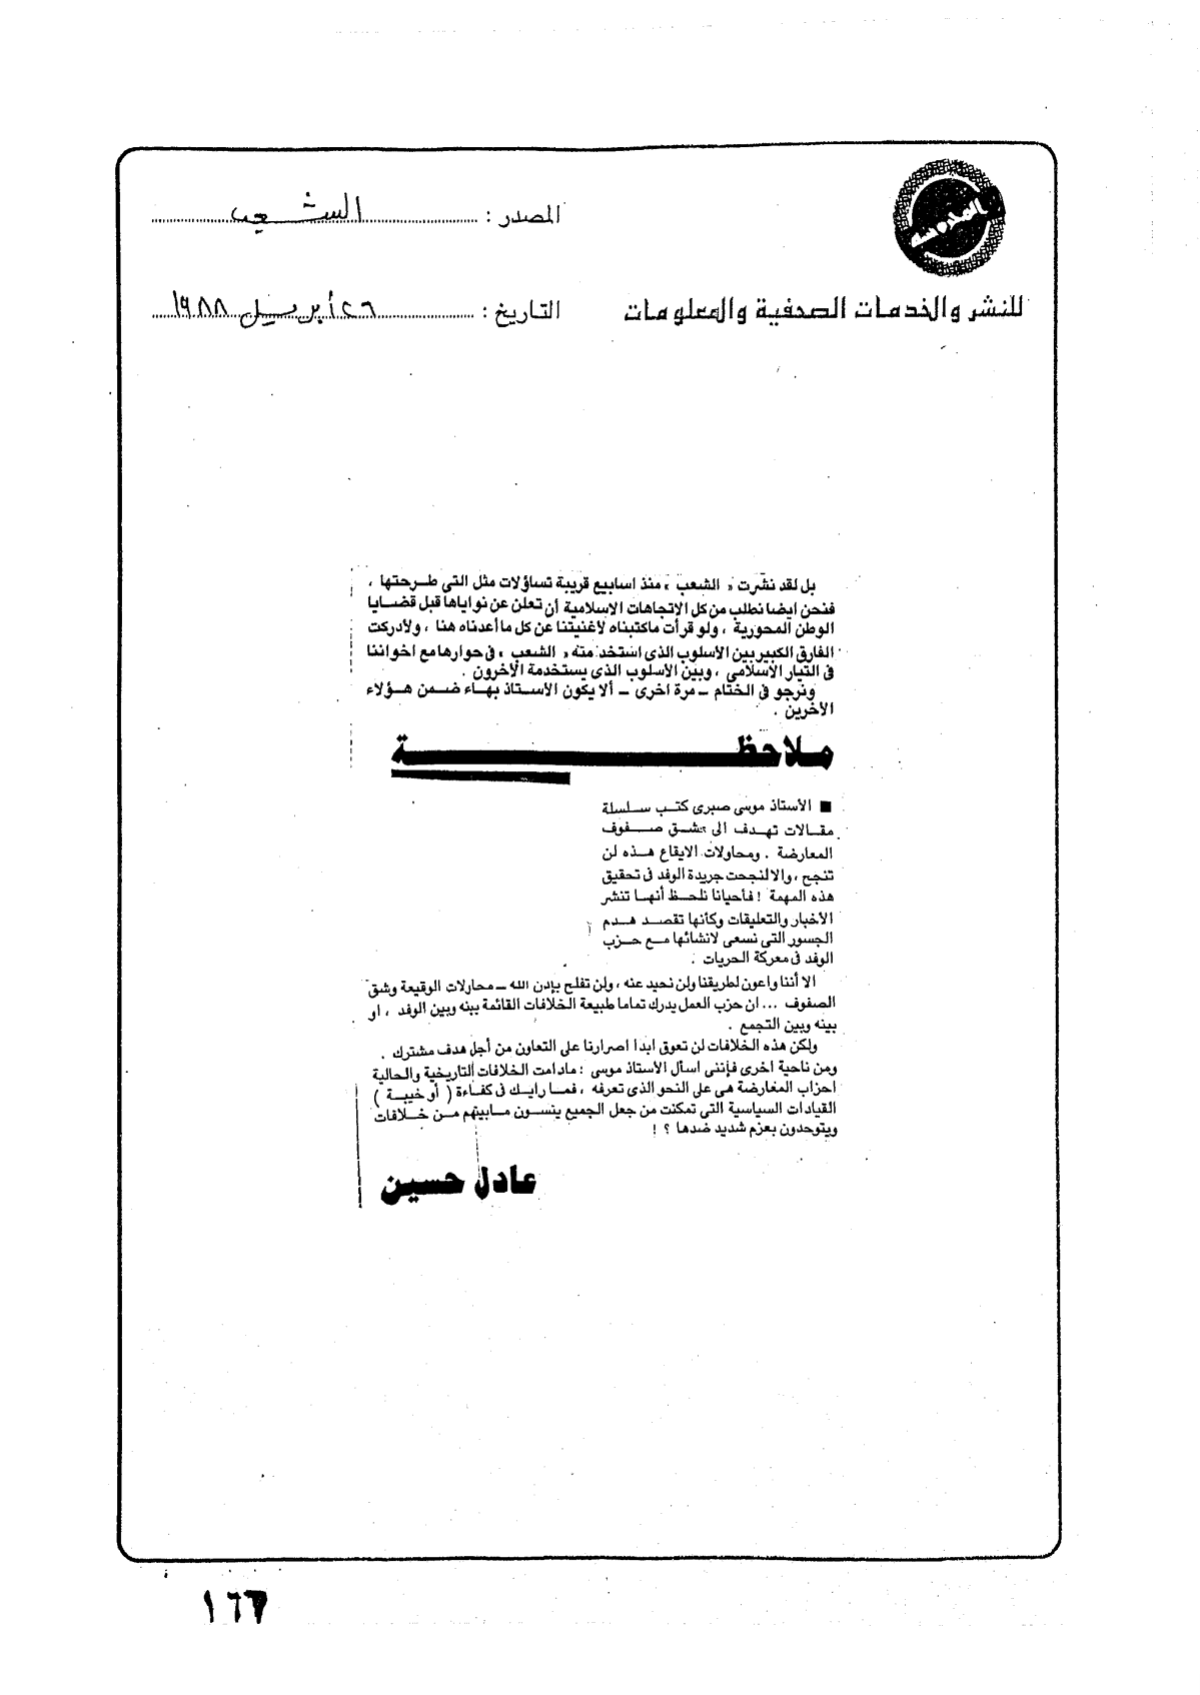 المصدر : الشعب
للنشر والخدمات الصحفية والمعلومات
التاريخ : ٢٦ أبريل ١٩٨٨
بل لقد نشرت « الشعب » منذ اسابيع قريبة تساؤلات مثل التى طرحتها ،
فنحن ايضا نطلب من كل الاتجاهات الاسلامية أن تعلن عن نواياها قبل قضايا
الوطن المحورية ، ولو قرأت ماكتبناه لاغنيتنا عن كل ما أعدناه هنا ، ولادركت
الفارق الكبير بين الأسلوب الذى استخدمته « الشعب » فى حوارها مع اخواننا
فى التيار الاسلامى ، وبين الاسلوب الذى يستخدمة الآخرون .
ونرجو فى الختام – مرة اخرى – ألا يكون الاستاذ بهاء ضمن هؤلاء
الآخرين .
ملاحظة
■ الأستاذ موسى صبرى كتب سلسلة
مقالات تهدف الى شق صفوف
المعارضة . ومحاولات الايقاع هذه لن
تنجح ، والا لنجحت جريدة الوفد فى تحقيق
هذه المهمة ! فأحيانا نلحظ أنها تنشر
الأخبار والتعليقات وكأنها تقصد هدم
الجسور التى نسعى لانشائها مع حزب
الوفد فى معركة الحريات .
الا أننا واعون لطريقنا ولن نحيد عنه ، ولن تفلح بإذن الله – محاولات الوقيعة وشق
الصفوف ... ان حزب العمل يدرك تماما طبيعة الخلافات القائمة بينه وبين الوفد ، او
بينه وبين التجمع .
ولكن هذه الخلافات لن تعوق ابدا اصرارنا على التعاون من أجل هدف مشترك .
ومن ناحية اخرى فإننى اسأل الاستاذ موسى : مادامت الخلافات التاريخية والحالية
احزاب المعارضة هى على النحو الذى تعرفه ، فما رايك فى كفاءة ( أو خيبة )
القيادات السياسية التى تمكنت من جعل الجميع ينسون مابينهم من خلافات
ويتوحدون بعزم شديد ضدها ؟ !
عادل حسين